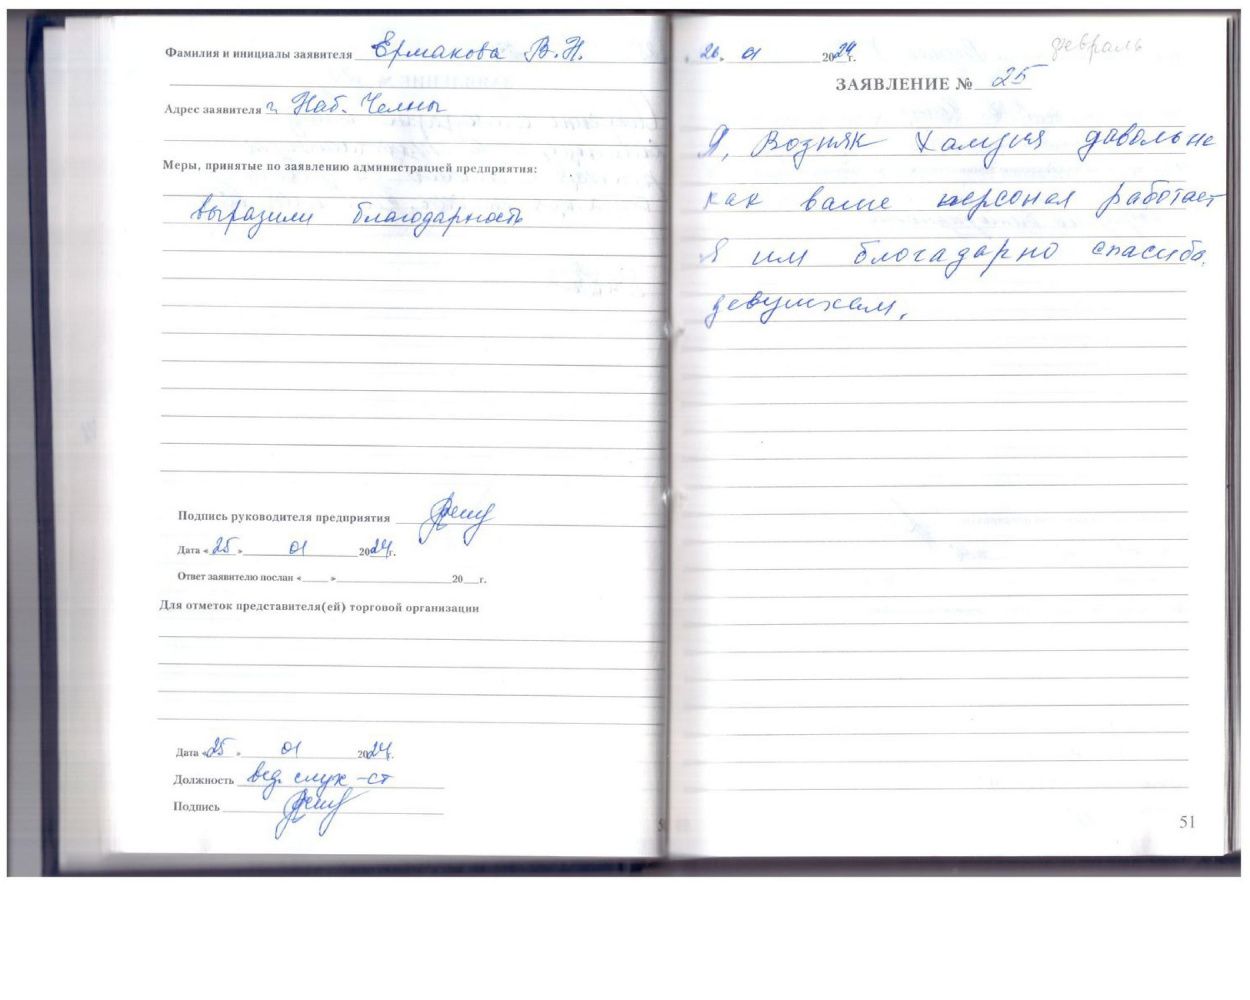 Фамилия и инициалы заявителя Ермакова В.Н.
Адрес заявителя г. Наб. Челны
Меры, принятые по заявлению администрацией предприятия:
выразили благодарность
Подпись руководителя предприятия
Дата « 25 » 01 2024г.
Ответ заявителю послан «____ »____ 20__г.
Для отметок представителя(ей) торговой организации
Дата « 25 » 01 2024г.
Должность вед. служ-ст
Подпись
26» 01 2024г.
февраль
ЗАЯВЛЕНИЕ № 25
Я, Возняк довольна
как ваше персонал работает
Я им благадарно спасибо.
девушкам.
51